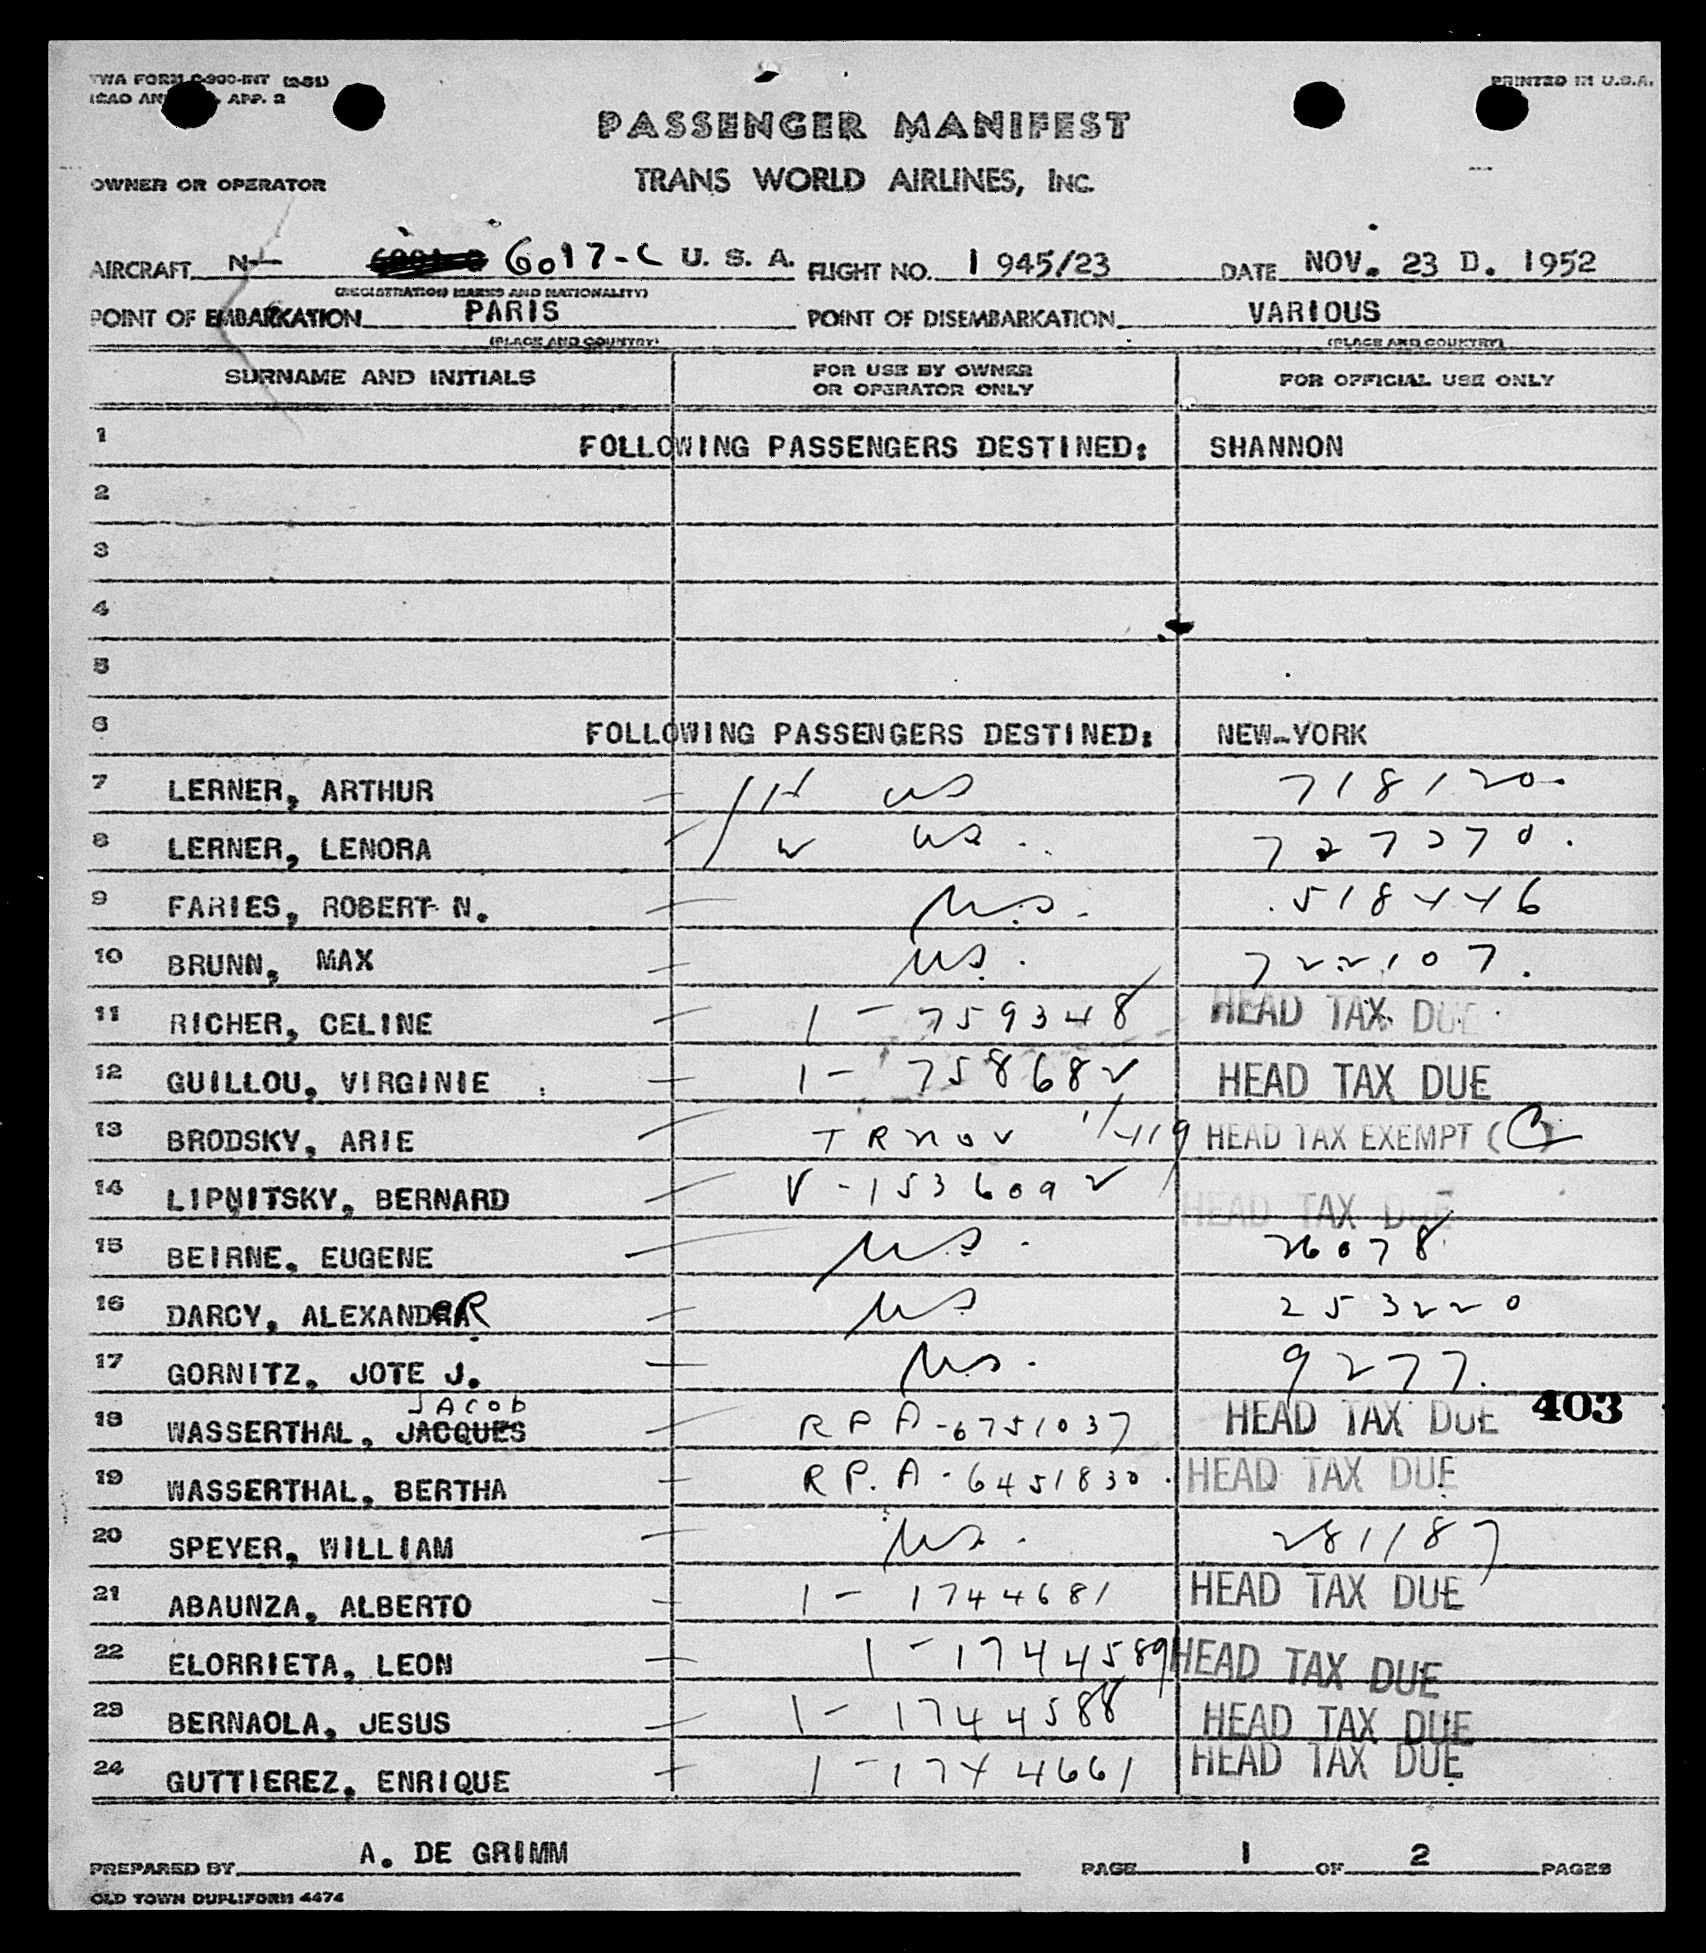 TWA FORM C-900-INT (2-51)
PRINTED IN U.S.A.
ICAO APP. 2
PASSENGER MANIFEST
OWNER OR OPERATOR
TRANS WORLD AIRLINES, INC.
AIRCRAFT N- 6017-C U. S. A. FLIGHT NO. 1 945/23 DATE NOV. 23 D. 1952
(REGISTRATION MARKS AND NATIONALITY)
POINT OF EMBARKATION PARIS POINT OF DISEMBARKATION VARIOUS
(PLACE AND COUNTRY) (PLACE AND COUNTRY)
SURNAME AND INITIALS FOR USE BY OWNER OR OPERATOR ONLY FOR OFFICIAL USE ONLY
1 FOLLOWING PASSENGERS DESTINED: SHANNON
2
3
4
5
6 FOLLOWING PASSENGERS DESTINED: NEW-YORK
7 LERNER, ARTHUR H US 718120
8 LERNER, LENORA W US. 727270.
9 FARIES, ROBERT N. U.S. 518446
10 BRUNN, MAX US. 722107.
11 RICHER, CELINE 1 - 759348 HEAD TAX DUE
12 GUILLOU, VIRGINIE 1 - 758682 HEAD TAX DUE
13 BRODSKY, ARIE HEAD TAX EXEMPT (C)
14 LIPNITSKY, BERNARD V-1536092 HEAD TAX DUE
15 BEIRNE, EUGENE US. 26078
16 DARCY, ALEXANDER US 253220
17 GORNITZ, JOTE J. US. 9277.
18 WASSERTHAL, JACQUES JACOB R P A-6751037 HEAD TAX DUE 403
19 WASSERTHAL, BERTHA R P. A - 6451830. HEAD TAX DUE
20 SPEYER, WILLIAM US. 281187
21 ABAUNZA, ALBERTO 1 - 1744681 HEAD TAX DUE
22 ELORRIETA, LEON 1 - 1744589 HEAD TAX DUE
23 BERNAOLA, JESUS 1 - 1744588 HEAD TAX DUE
24 GUTTIEREZ, ENRIQUE 1 - 1744661 HEAD TAX DUE
PREPARED BY A. DE GRIMM PAGE 1 OF 2 PAGES
OLD TOWN DUPLIFORM 4474